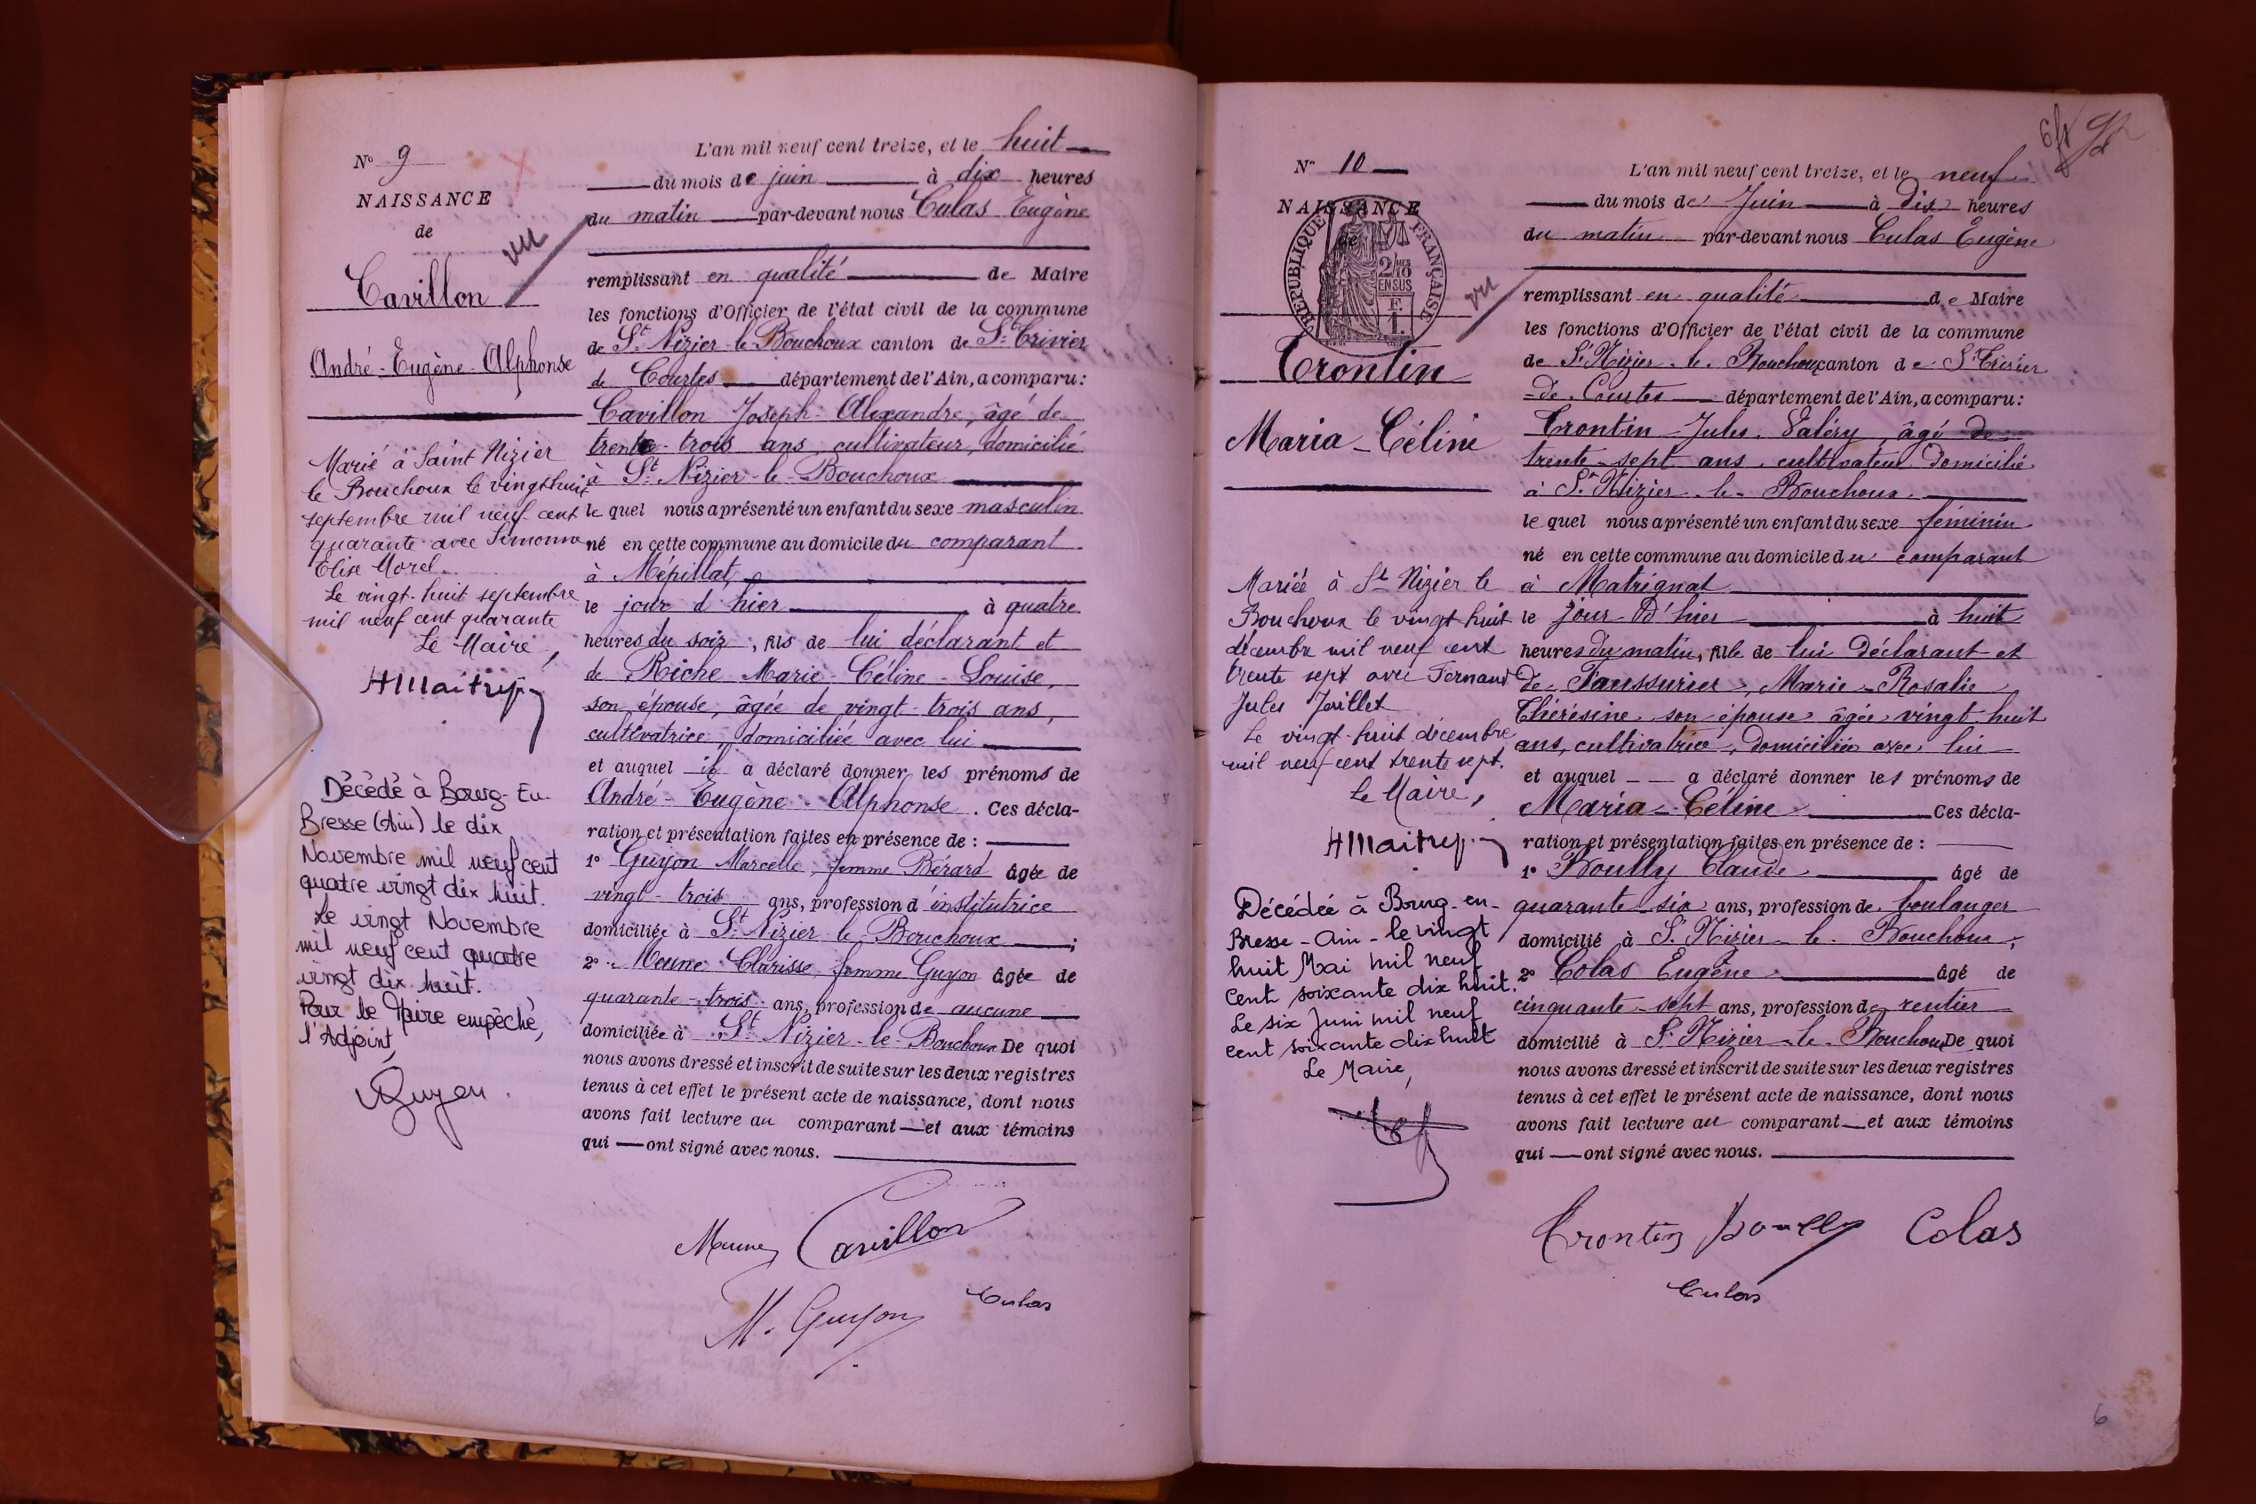 N° 9
NAISSANCE
de
vu
Cavillon
André-Eugène-Alphonse
Marié à Saint Nizier
le Bouchoux le vingt huit
septembre mil neuf cent
quarante avec Simonne
Elise Morel.
Le vingt-huit septembre
mil neuf cent quarante
Le Maire,
Décédé à Bourg-En-
Bresse (Ain) le dix
Novembre mil neuf cent
quatre vingt dix huit.
Le vingt Novembre
mil neuf cent quatre
vingt dix huit.
Pour le Maire empêché,
l'Adjoint,
Guyon
L'an mil neuf cent treize, et le huit
du mois de juin à dix heures
du matin par-devant nous Culas Eugène
remplissant en qualité de Maire
les fonctions d'Officier de l'état civil de la commune
de St Nizier-le-Bouchoux canton de St Trivier
de Courtes département de l'Ain, a comparu:
Cavillon Joseph-Alexandre, âgé de
trente-trois ans, cultivateur, domicilié
à St Nizier-le-Bouchoux
le quel nous a présenté un enfant du sexe masculin
né en cette commune au domicile du comparant
à Mépillat,
le jour d'hier à quatre
heures du soir, fils de lui déclarant et
de Riche Marie-Céline-Louise,
son épouse, âgée de vingt-trois ans,
cultivatrice, domiciliée avec lui
et auquel il a déclaré donner les prénoms de
André-Eugène-Alphonse. Ces décla-
ration et présentation faites en présence de:
1° Guyon Marcelle, femme Bérard âgée de
vingt-trois ans, profession d'institutrice
domiciliée à St Nizier-le-Bouchoux;
2° Meune Clarisse, femme Guyon âgée de
quarante-trois ans, profession de aucune
domiciliée à St Nizier-le-Bouchoux De quoi
nous avons dressé et inscrit de suite sur les deux registres
tenus à cet effet le présent acte de naissance, dont nous
avons fait lecture au comparant et aux témoins
qui ont signé avec nous.
Meune Cavillon
M. Guyon Culas
N° 10
NAISSANCE
de
REPUBLIQUE FRANÇAISE
2/10
EN SUS
F.
1.
vu
Trontin
Maria-Céline
Mariée à St Nizier le
Bouchoux le vingt huit
décembre mil neuf cent
trente sept avec Fernand
Jules Jaillet
Le vingt-huit décembre
mil neuf cent trente sept.
Le Maire,
Décédée à Bourg-en-
Bresse-Ain-le vingt
huit Mai mil neuf
cent soixante dix huit.
Le six Juin mil neuf
cent soixante dix huit
Le Maire,
L'an mil neuf cent treize, et le neuf
du mois de Juin à dix heures
du matin par-devant nous Culas Eugène
remplissant en qualité de Maire
les fonctions d'Officier de l'état civil de la commune
de St Nizier-le-Bouchoux canton de St Trivier
de Courtes département de l'Ain, a comparu:
Trontin Jules Valéry âgé de
trente-sept ans, cultivateur domicilié
à St Nizier-le-Bouchoux
le quel nous a présenté un enfant du sexe féminin
né en cette commune au domicile du comparant
à Matrignat
le jour d'hier à huit
heures du matin, fille de lui déclarant et
de Marie-Rosalie
Thérésine son épouse âgée vingt huit
ans, cultivatrice, domiciliée avec lui
et auquel a déclaré donner les prénoms de
Maria-Céline Ces décla-
ration et présentation faites en présence de:
1° Boully Claude âgé de
quarante six ans, profession de boulanger
domicilié à St Nizier-le-Bouchoux;
2° Colas Eugène âgé de
cinquante-sept ans, profession de rentier
domicilié à St Nizier-le-Bouchoux De quoi
nous avons dressé et inscrit de suite sur les deux registres
tenus à cet effet le présent acte de naissance, dont nous
avons fait lecture au comparant et aux témoins
qui ont signé avec nous.
Trontin Boully Colas
Culas
6